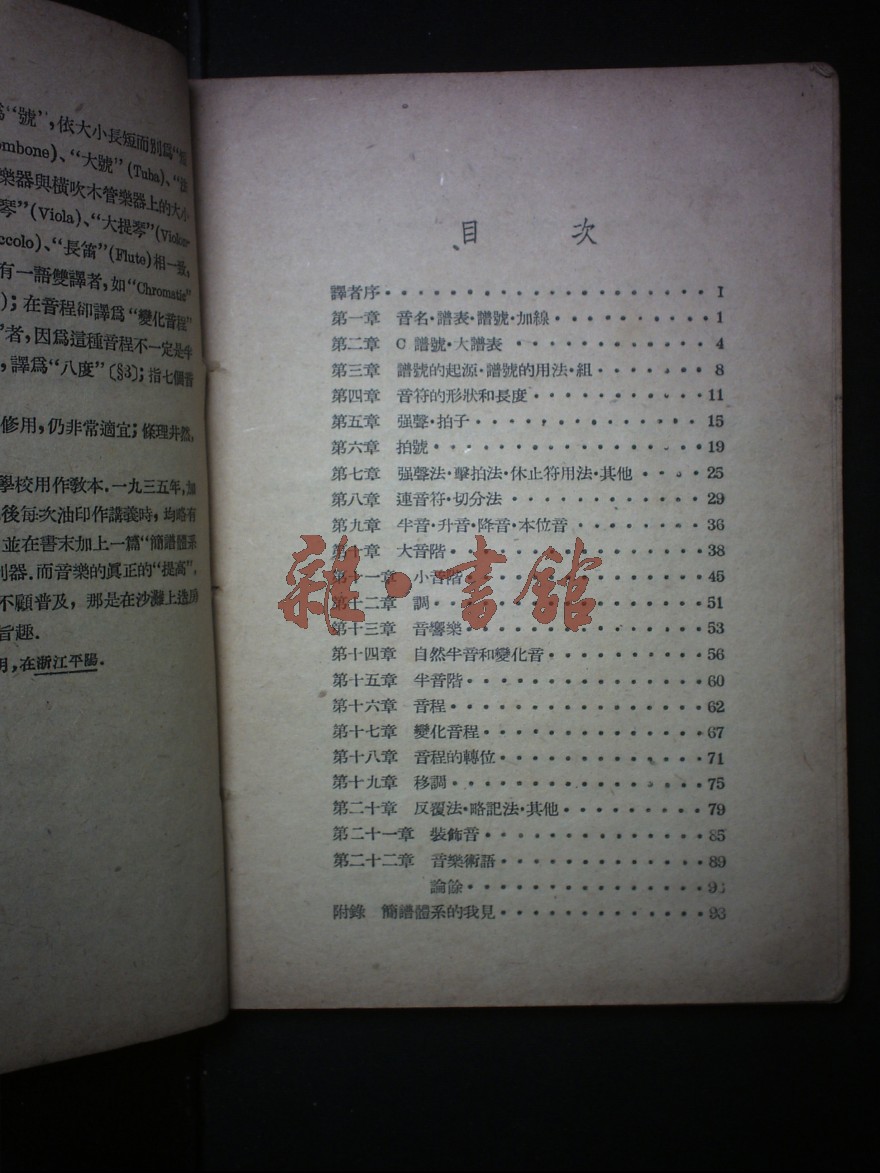 為“號”,依大小長短而別爲“短
ombone)、“大號”(Tuba)、
樂器與橫吹木管樂器上的大小
琴”(Viola)、“大提琴”(Violon-
ccolo)、“長笛”(Flute)相一致,
有一語雙譯者,如“Chromatic”
);在音程卻譯爲“變化音程”
”者,因爲這種音程不一定是半
,譯爲“八度”〔§3〕;指七個音
修用,仍非常適宜;條理井然,
學校用作敎本.一九三五年,加
後每次油印作講義時,均略有
並在書末加上一篇“簡譜體系
利器.而音樂的眞正的“提高”,
不顧普及,那是在沙灘上造房
旨趣.
月,在浙江平陽.
目 次
譯者序 I
第一章 音名·譜表·譜號·加線 1
第二章 C 譜號·大譜表 4
第三章 譜號的起源·譜號的用法·組 8
第四章 音符的形狀和長度 11
第五章 强聲·拍子 15
第六章 拍號 19
第七章 强聲法·擊拍法·休止符用法·其他 25
第八章 連音符·切分法 29
第九章 半音·升音·降音·本位音 36
第十章 大音階 38
第十一章 小音階 45
第十二章 調 51
第十三章 音響樂 53
第十四章 自然半音和變化音 56
第十五章 半音階 60
第十六章 音程 62
第十七章 變化音程 67
第十八章 音程的轉位 71
第十九章 移調 75
第二十章 反覆法·略記法·其他 79
第二十一章 裝飾音 85
第二十二章 音樂術語 89
論餘
附錄 簡譜體系的我見 93
雜·書館